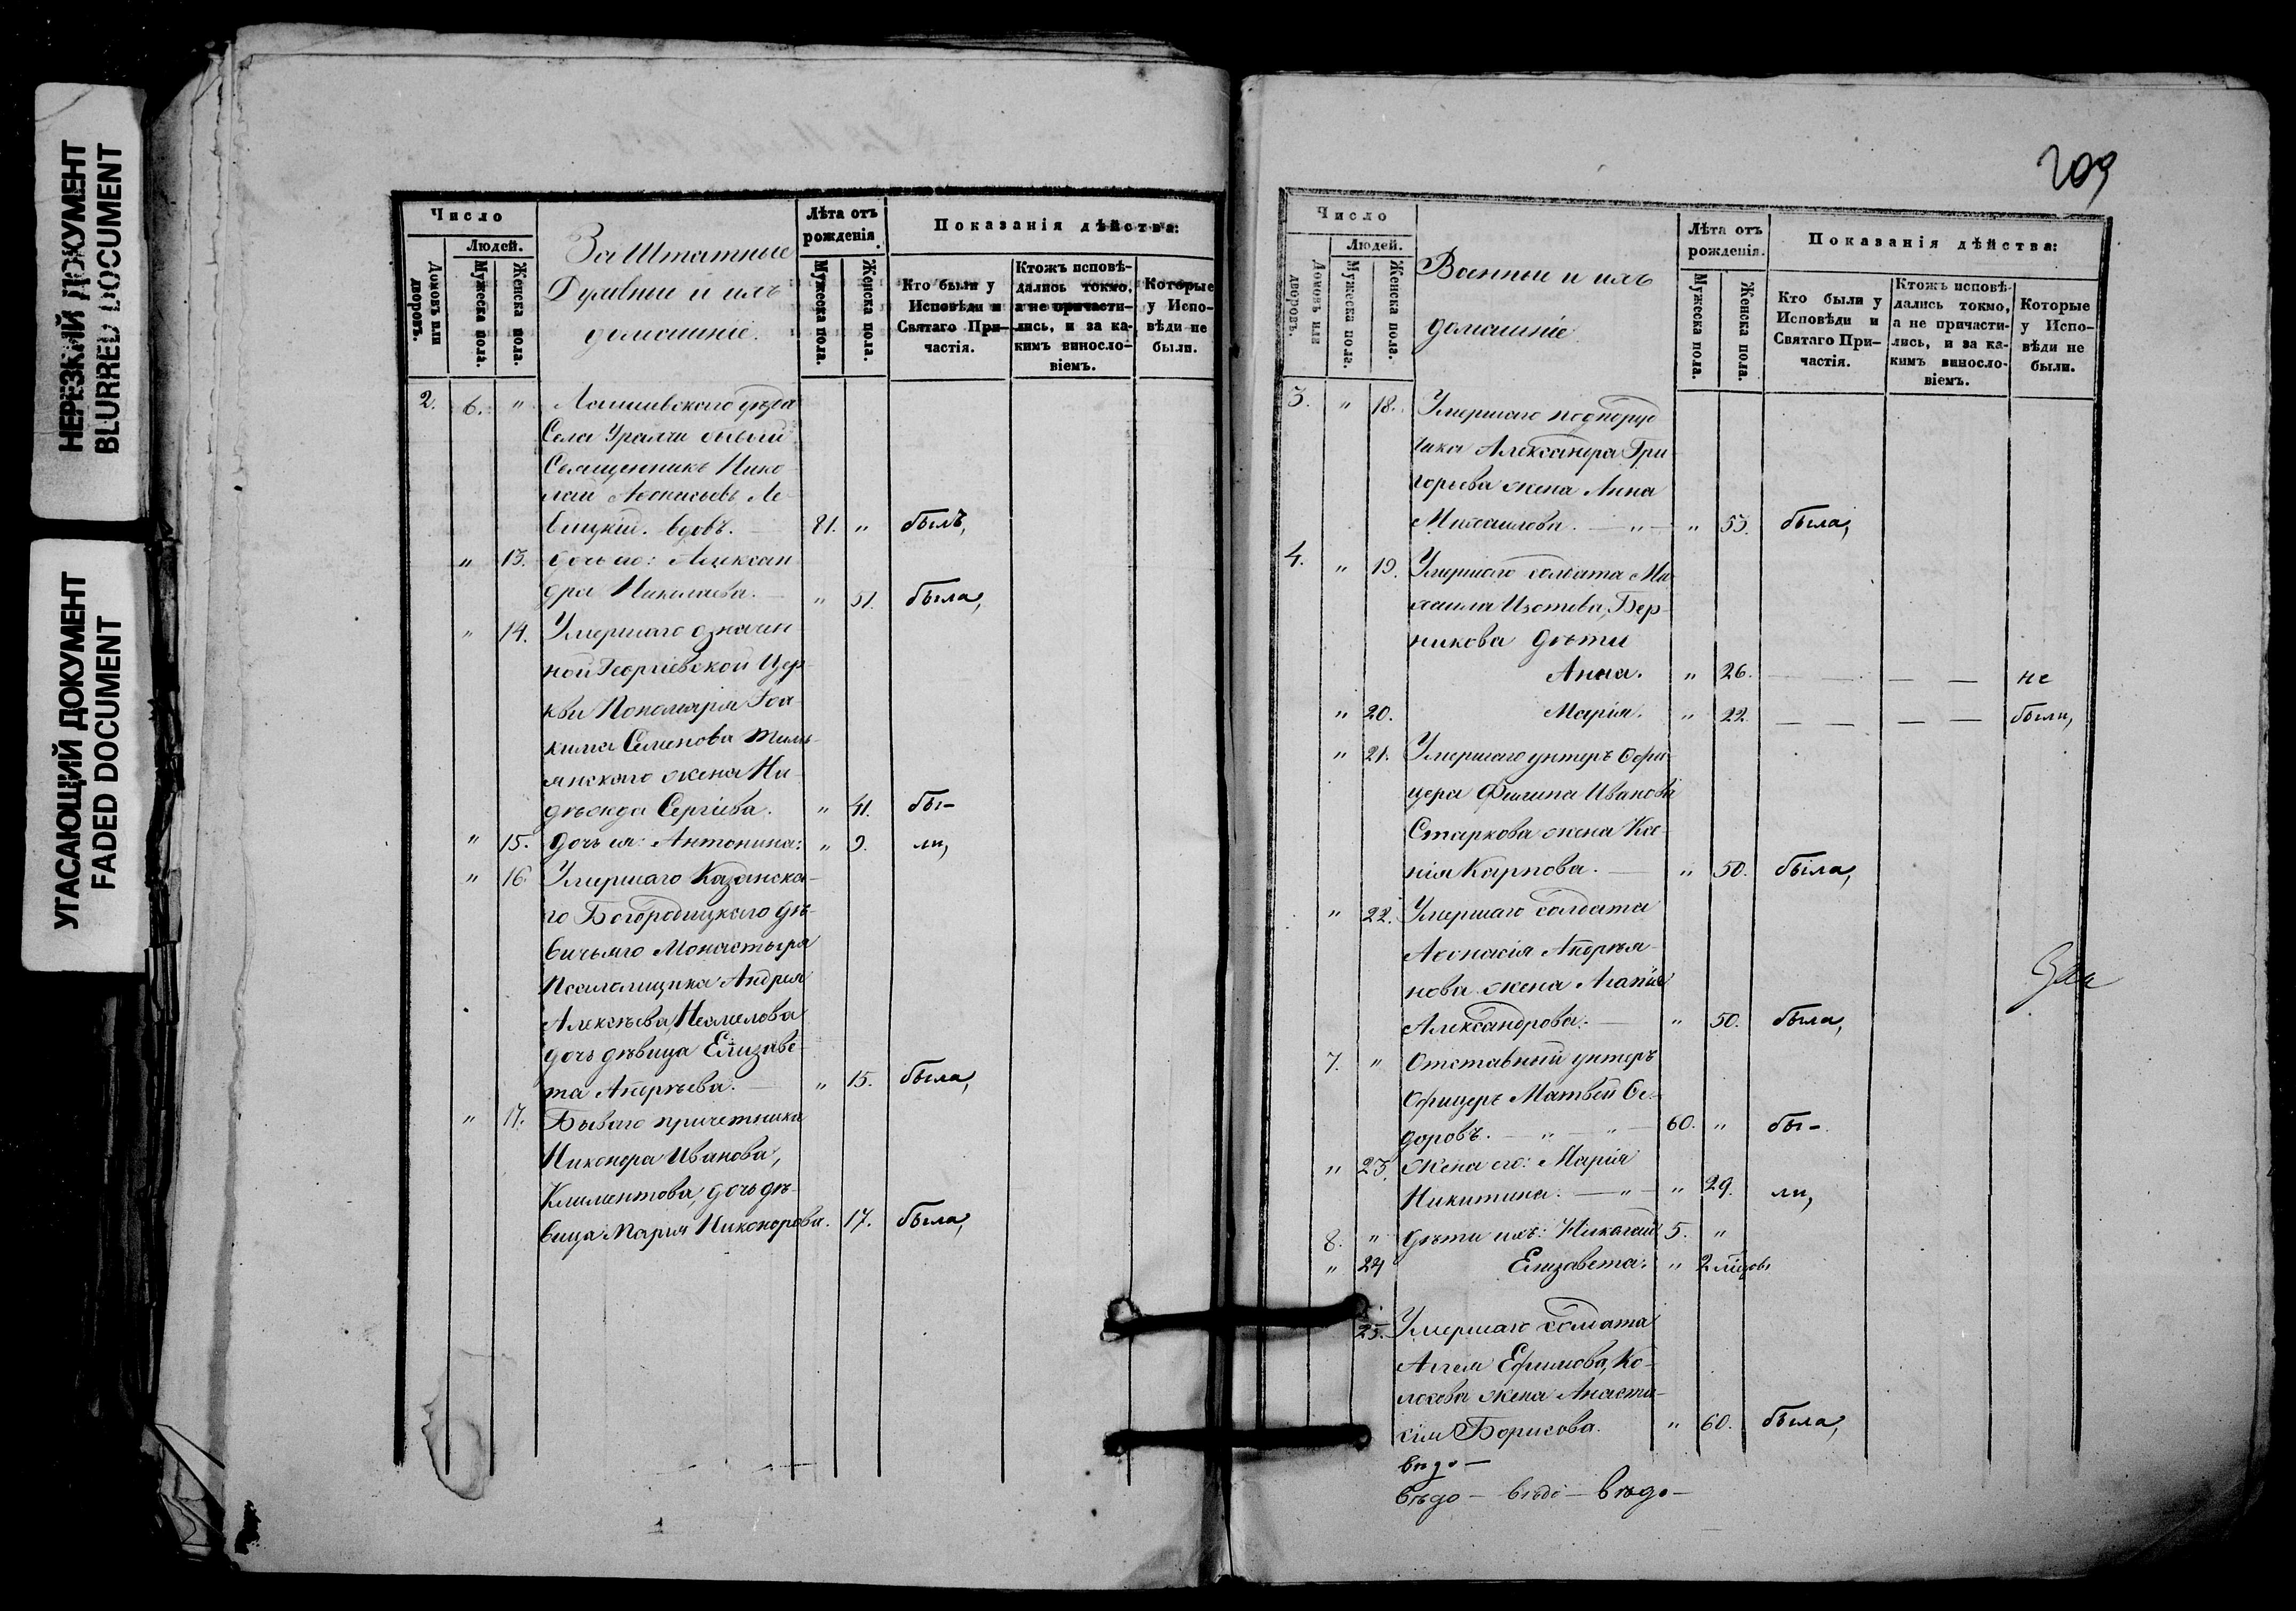 НЕРЕЗКИЙ ДОКУМЕНТ
BLURRED DOCUMENT
УГАСАЮЩИЙ ДОКУМЕНТ
FADED DOCUMENT
Число
Людей.
Домовъ или дворовъ.
Мужеска пола.
Женска пола.
За Штатные
Духовные и ихъ
домашніе.
Лѣта отъ
рожденія.
Мужеска пола.
Женска пола.
Показанія дѣйства:
Кто были у
Исповѣди и
Святаго При-
частія.
Ктожъ исповѣ-
дались токмо,
а не причасти-
лись, и за ка-
кимъ виносло-
віемъ.
Которые
у Испо-
вѣди не
были.
2. 6. " Лаишевскаго уѣзда
Села бывый
Священникъ Нико-
лай
вдовъ. — 81. " былъ,
" 13. дочь его: Алексан
дра Николаева. — " 51. была,
" 14. Умершаго означен
ной Георгіевской Цер-
кви Пономаря Іоа-
кима Семенова
жена На-
дежда Сергіева. " 41. бы-
" 15. дочь ея: Антонина: " 9. ли,
" 16. Умершаго Казанска-
го Богородицкаго дѣ-
вичьяго Монастыря
Псаломщика Андрея
Алексѣева, Несмелова
дочь дѣвица Елизаве-
та Андреева. — " 15. была,
" 17. Бывшаго причетника
Никонора Иванова,
Климентова, дочь дѣ-
вица Марія Никонорова. 17. была,
209
Число
Людей.
Домовъ или дворовъ.
Мужеска пола.
Женска пола.
Военные и ихъ
домашніе.
Лѣта отъ
рожденія.
Мужеска пола.
Женска пола.
Показанія дѣйства:
Кто были у
Исповѣди и
Святаго При-
частія.
Ктожъ исповѣ-
дались токмо,
а не причасти-
лись, и за ка-
кимъ виносло-
віемъ.
Которые
у Испо-
вѣди не
были.
3. " 18. Умершаго подпору
чика Александра Гри
горьева жена Анна
Михаилова. — " — " 53. была,
4. " 19. Умершаго солдата Ми
хаила Изотова, Бер-
никова дѣти
Анна. " 26. — — — — не
" 20. Марія. " 22. — — — — были,
" 21. Умершаго унтеръ Офи
цера Филипа Иванова
Старкова жена Ксе-
нія Карпова. — " 50. была,
" 22. Умершаго солдата
Аѳонасія Андреья-
нова жена Агапія
Александрова. — " 50. была,
7. " Отставный унтеръ
Офицеръ Матвей Ѳе-
доровъ. — " — " — 60. " бы-
" 23. Жена его: Марія
Никитина. — " — " 29. ли,
8. " дѣти ихъ: Николай 5. "
" 24 Елизавета. " 2
25. Умершаго солдата
Агея Ефимова, Ко-
лосова жена Анаста-
сія Борисова. " 60. была,
вѣдо —
вѣдо — вѣдо — вѣдо —